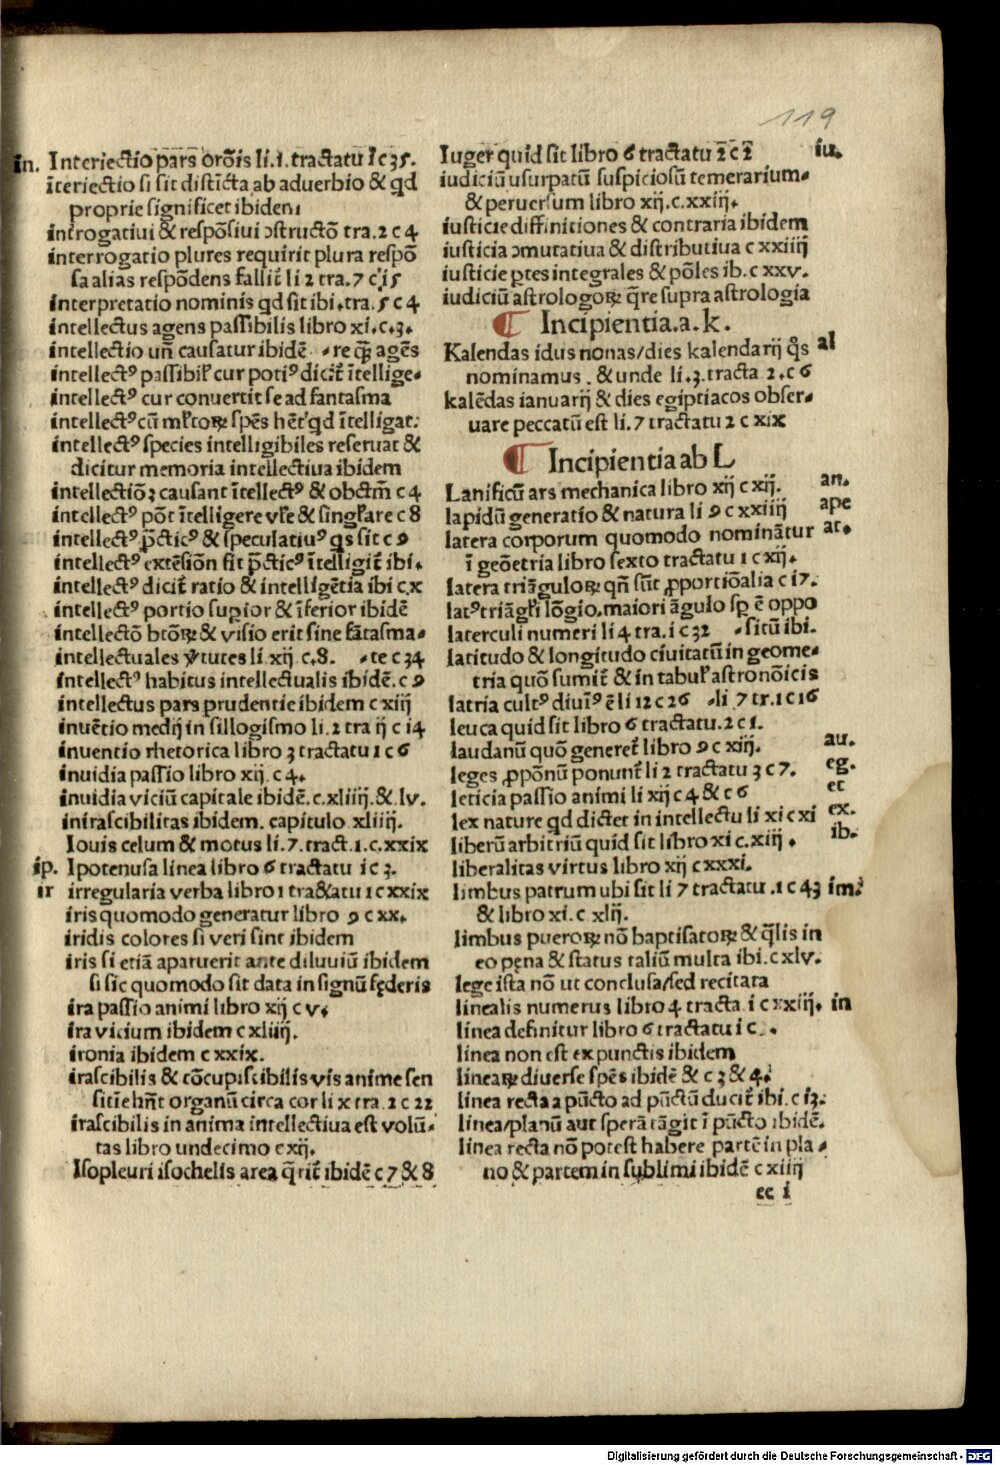 119
in. Interiectio pars orōis li.1.tractatu 1c35.
īteriectio si sit distīcta ab aduerbio & qd
proprie significet ibidem
introgatiui & respōsiui ↄstructō tra.2 c 4
interrogatio plures requirit plura respō
sa alias respōdens fallit̄ li 2 tra.7 c 15
interpretatio nominis qd sit ibi.tra.5 c 4
intellectus agens passibilis libro xi.c.3.
intellectio un̄ causatur ibidē ⸗re qꝫ agēs
intellectꝰ passibil' cur potiꝰ dicit̄ ītellige⸗
intellectꝰ cur conuertit se ad fantasma
intellectꝰ cū mꝉtoꝝ spēs hēt qd ītelligat.
intellectꝰ species intelligibiles reseruat &
dicitur memoria intellectiua ibidem
intellectiōꝫ causant ītellectꝰ & obctm̄ c 4
intellectꝰ pōt ītelligere vꝉe & singꝉare c 8
intellectꝰ p̄cticꝰ & speculatiuꝰ qs sit c 9
intellectꝰ extēsiōn fit p̄cticꝰ ītelligit̄ ibi.
intellectꝰ dicit̄ ratio & intelligētia ibi c.x
intellectꝰ portio supior & īferior ibidē
intellectō btōꝝ & visio erit sine fātasma⸗
intellectuales v̄tutes li.xij.c.8. ⸗te c 34
intellectꝰ habitus intellectualis ibidē.c 9
intellectus pars prudentie ibidem c xiij
inuētio medij in sillogismo li.2 tra ij c 14
inuentio rhetorica libro 3 tractatu 1 c 6
inuidia passio libro xij c 4.
inuidia viciū capitale ibidē.c.xliiij.& lv.
inirascibilitas ibidem. capitulo xliiij.
Iouis celum & motus li.7.tract.1.c.xxix
ip. Ipotenusa linea libro 6 tractatu i c 3.
ir irregularia verba libro 1 tractatu 1 c xxix
iris quomodo generatur libro 9 c xx.
iridis colores si veri sint ibidem
iris si etiā aparuerit ante diluuiū ibidem
si sic quomodo sit data in signū fęderis
ira passio animi libro xij c v.
ira vicium ibidem c xliiij.
ironia ibidem c xxix.
irascibilis & cōcupiscibilis vis anime sen
sitiē hn̄t organū circa cor li x tra.2 c 22
irascibilis in anima intellectiua est volū⸗
tas libro undecimo c xij.
Isopleuri isochelis area q̄rit̄ ibidē c 7 & 8
Iuger quid sit libro 6 tractatu 2 c 2 iu.
iudiciū usurpatū suspiciosū temerarium⸗
& peruersum libro xij.c.xxiij.
iusticie diffinitiones & contraria ibidem
iusticia ↄmutatiua & distributiua c xxiiij
iusticie ptes integrales & pōles ib.c xxv.
iudiciū astrologoꝝ q̄re supra astrologia
¶ Incipientia.a.k.
Kalendas idus nonas/dies kalendarij q̊s al
nominamus . & unde li.3.tracta 2.c 6
kalēdas ianuarij & dies egiptiacos obser⸗
uare peccatū est li.7 tractatu 2 c xix
¶ Incipientia ab L
Lanificū ars mechanica libro xij c xij. an.
lapidū generatio & natura li 9 c xxiiij ape
latera corporum quomodo nominātur at.
ī geōetria libro sexto tractatu 1 c xij.
latera triāguloꝝ qn̄ sūt ꝓportiōalia c 17.
latꝰ triāgꝉi lōgio.maiori āgulo sp ē oppo
laterculi numeri li 4 tra.i c 32 ⸗sitū ibi.
latitudo & longitudo ciuitatū in geome⸗
tria quō sumit̄ & in tabuꝉ astronōicis
latria cultꝰ diuīꝰ ē li 12 c 26 ⸗li.7 tr.1 c 16
leuca quid sit libro 6 tractatu.2 c 1.
laudanū quō generet̄ libro 9 c xiij. au.
leges ꝓpōnū ponunt̄ li 2 tractatu 3 c 7. eg.
leticia passio animi li xij c 4 & c 6 et
lex nature qd dictet in intellectu li xi c xi ex.
liberū arbitriū quid sit libro xi c.xiij . ib.
liberalitas virtus libro xij c xxxi.
limbus patrum ubi sit li 7 tractatu .1 c 43 im.
& libro xi.c xlij.
limbus pueroꝝ nō baptisatoꝝ & q̄lis in
eo pęna & status taliū multa ibi.c xlv.
lege ista nō ut conclusa/sed recitata
linealis numerus libro 4 tracta.i c xxiij. in
linea definitur libro 6 tractatu i c .
linea non est ex punctis ibidem
lineaꝝ diuerse spēs ibidē & c 3 & 4.
linea recta a pūcto ad pūctū ducit̄ ibi.c 13.
linea/planū aut sperā tāgit ī pūcto ibidē.
linea recta nō potest habere partē in pla ⸗
no & partem in sublimi ibidē c xiiij
cc i
Digitalisierung gefördert durch die Deutsche Forschungsgemeinschaft - DFG